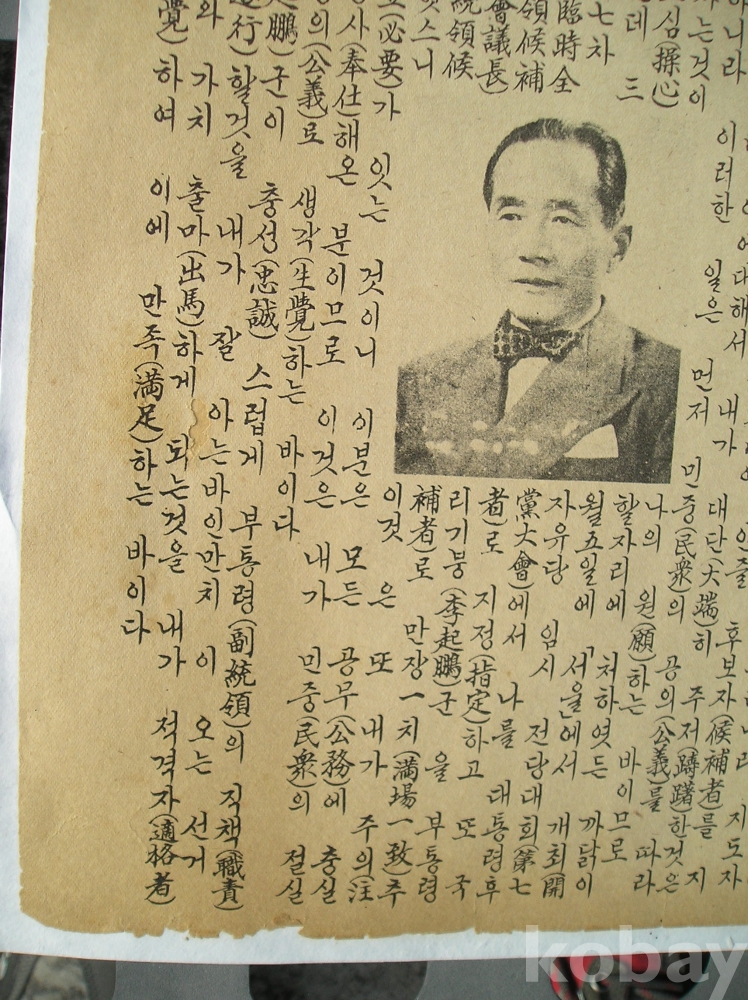 지도자
후보자(候補者)를 지
하니라 에대해서 내가 대단(大端)히 주저(躊躇)한것은
하는것이 이러한 일은 먼저 민중(民衆)의 공의(公義)를 따라
심(操心) 나의 원(願)하는 바이므로
데 三 할자리에 처하엿든 까닭이
七차 월五일에 「서울」에서 개최(開
臨時全 자유당 임시 전당대회(第七
領候補 黨大會)에서 나를 대통령후
會議長) 者)로 지정(指定)하고 또 국
統領候 리기붕(李起鵬)군을 부통령
엇스니 補者)로 만장一치(満場一致)추
이것은 또 내가 주의(注
(必要)가 잇는 것이니 이분은 모든 공무(公務)에 충실
사(奉仕)해온 분이므로 이것은 내가 민중(民衆)의 절실
의(公義)로 생각(生覺)하는 바이다
鵬)군이 충성(忠誠)스럽게 부통령(副統領)의 직책(職責)
行)할것을 내가 잘 아는바인만치 이 오는 선거
와 가치 출마(出馬)하게 되는것을 내가 적격자(適格者)
覺)하여 이에 만족(満足)하는 바이다
kobay